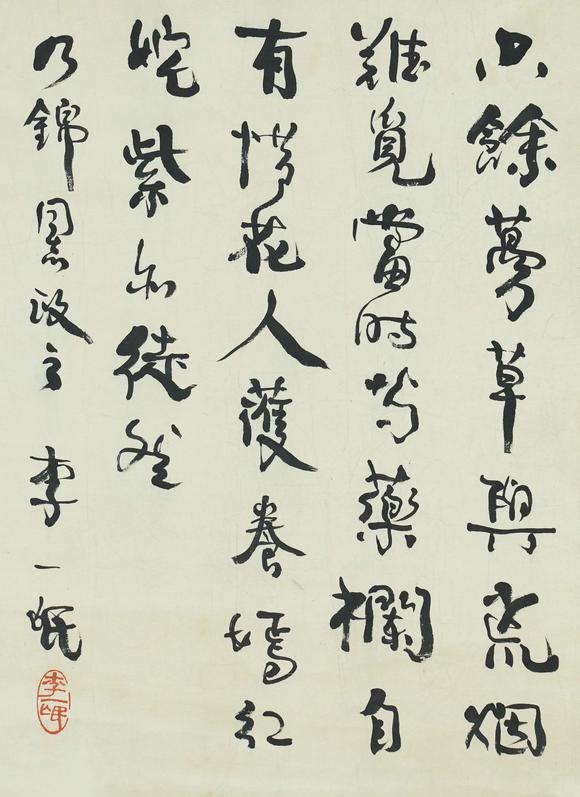 只餘蔓草與荒烟
難覓當時芍藥欄自
有惜花人護養嫣紅
姹紫亦徒然
乃錦同志政之 李一氓
李一氓